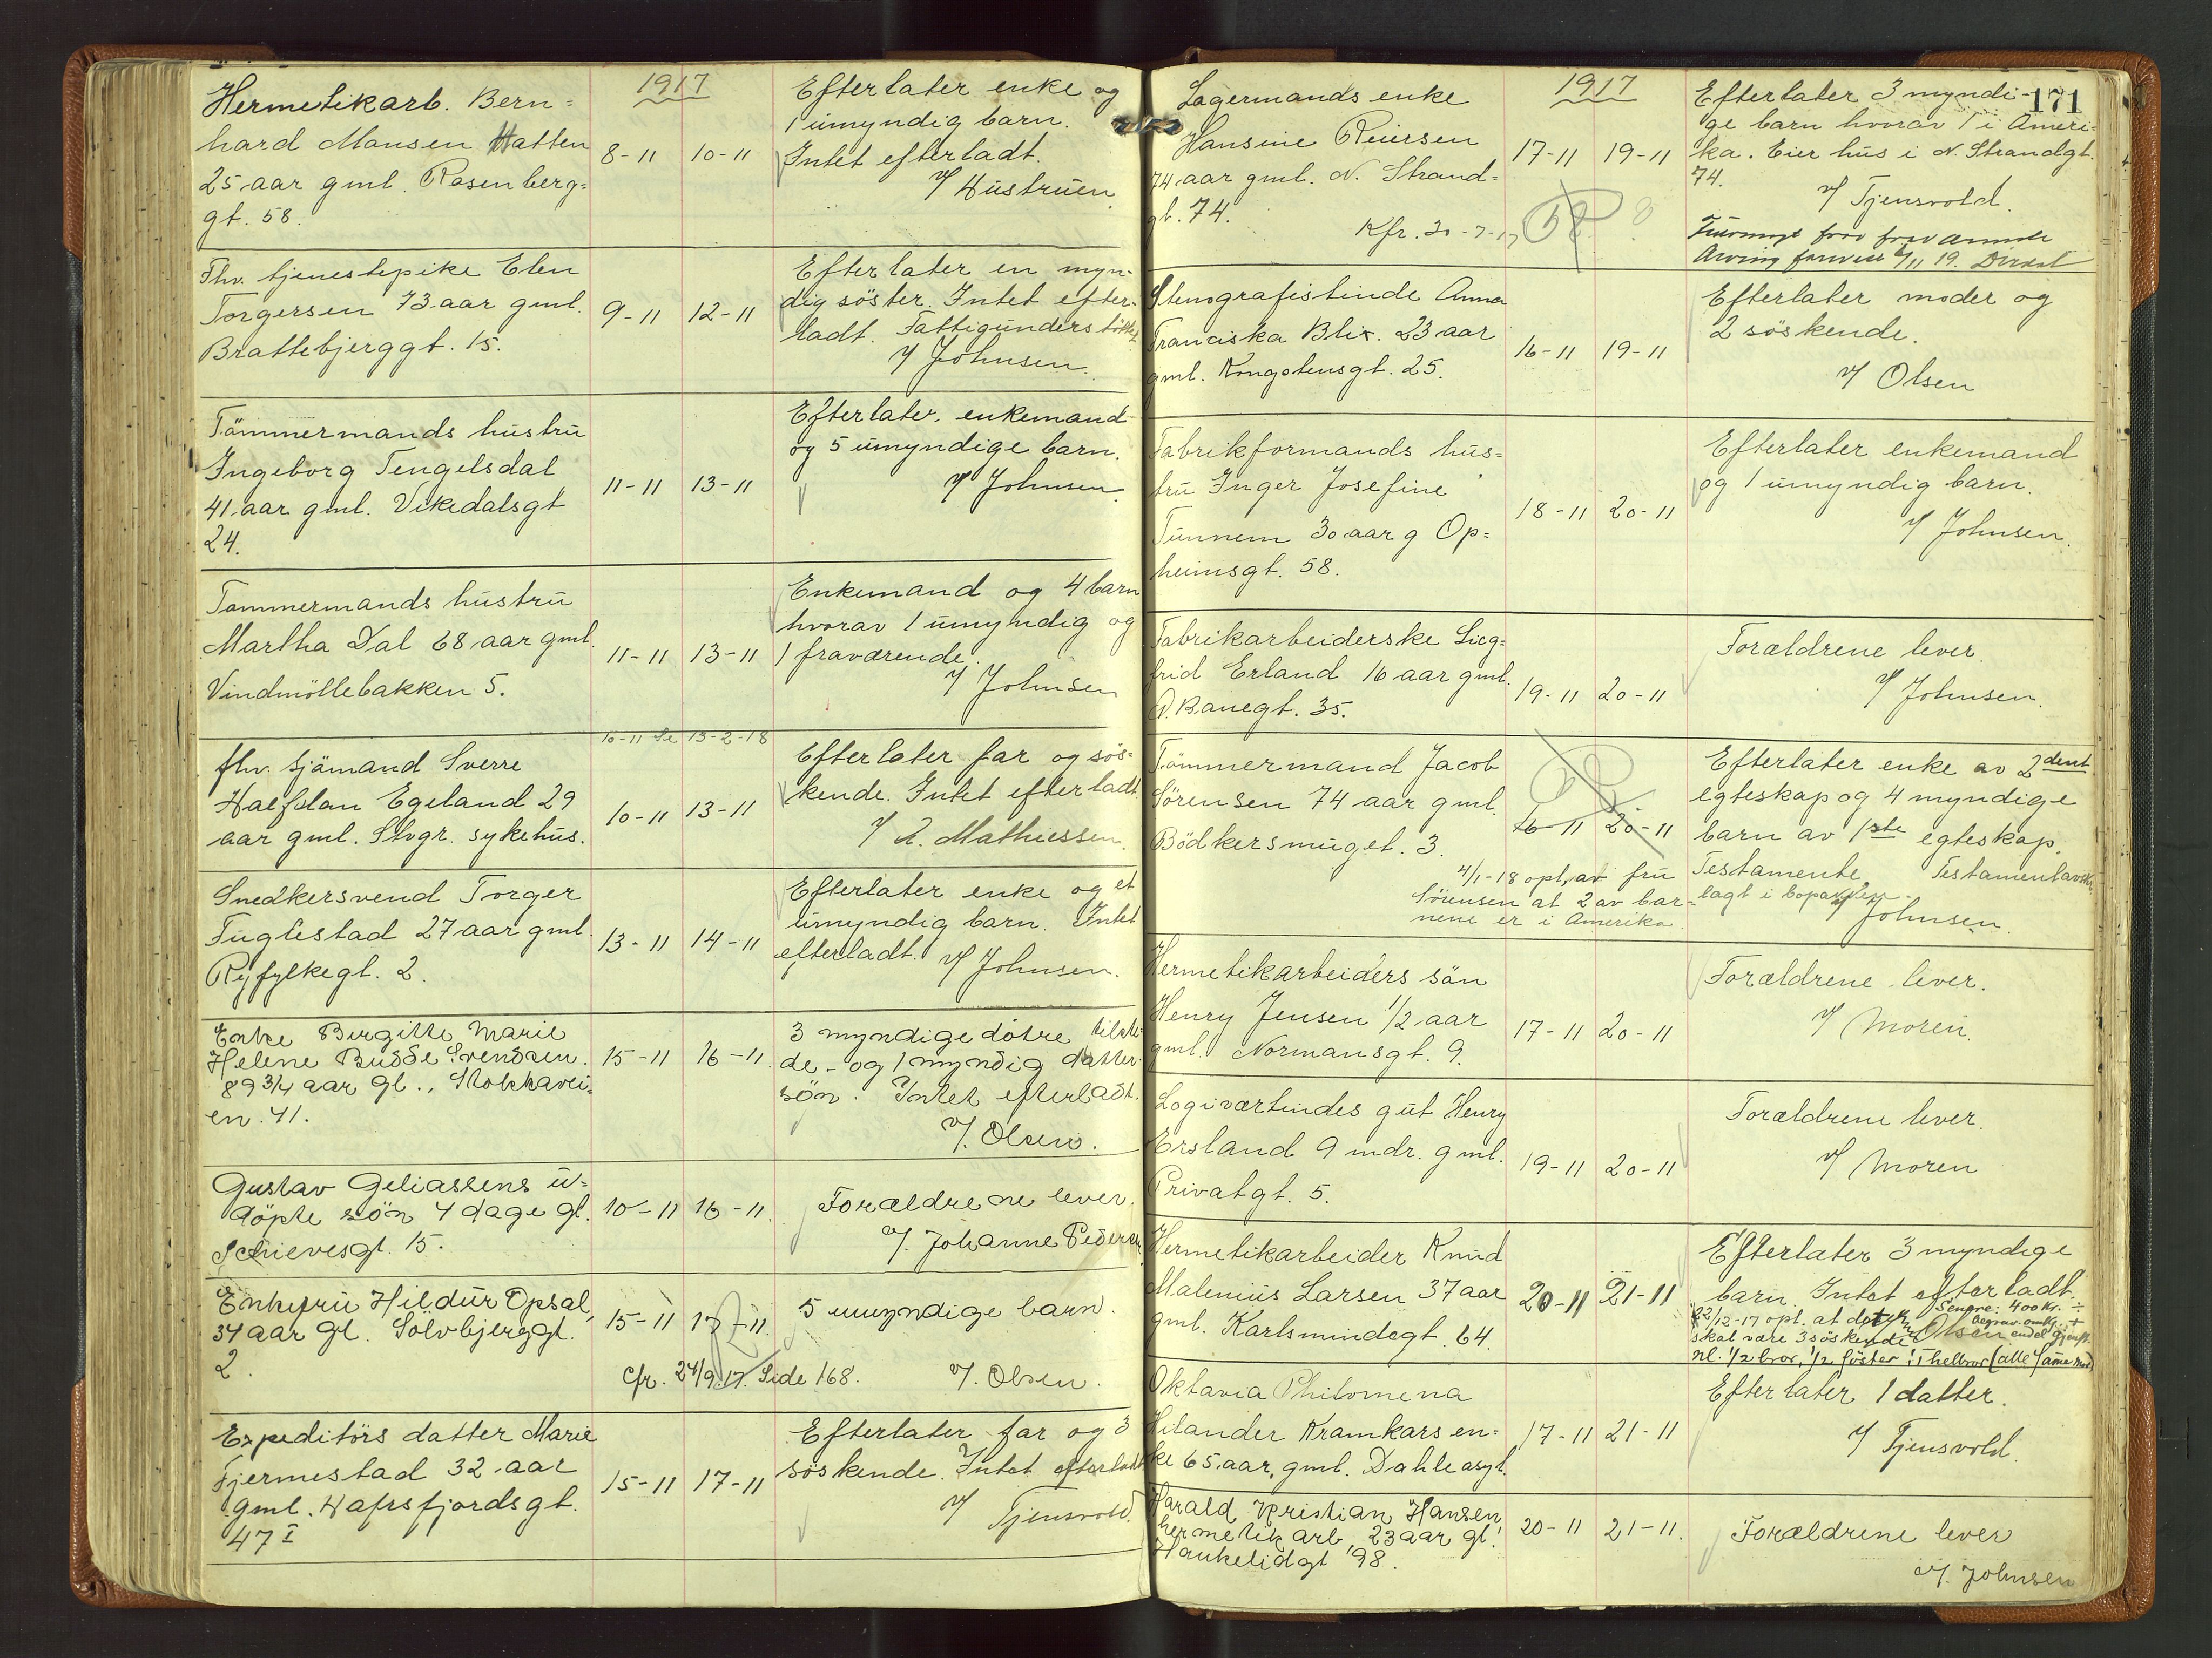 Hermetikarb. Bern=
hard Monsen Hatten
25 aar gml. Rosenberg=
gt. 58.
1917
8-11 10-11
Efterlater enke og
1 umyndig barn.
Intet efterladt.
v/ Hustruen
Fhv. tjenestepike Elen
Torgersen 73 aar gml.
Brattebjerggt. 15.
9-11 12-11
Efterlater en myn-
dig söster. Intet efter-
ladt. Fattigunderstöttet
v/ Johnsen.
Tömmermands hustru
Ingeborg Tengelsdal
41 aar gml. Vikedalsgt
24.
11-11 13-11
Efterlater enkemand
og 5 umyndige barn.
v/ Johnsen.
Tømmermands hustru
Martha Dal 68 aar gml.
Vindmöllebakken 5.
11-11 13-11
Enkemand og 4 barn
hvorav 1 umyndig og
1 fraværende.
v/ Johnsen
fhv. sjömand Sverre
Halfdan Egeland 29
aar gml. Stvgr. sykehus.
10-11 Se 13-2-18
10-11 13-11
Efterlater far og sös-
kende. Intet efterladt.
v/ A. Mathiessen.
Snedkersvend Torger
Fuglestad 27 aar gml.
Ryfylkegt. 2.
13-11 14-11
Efterlater enke og et
umyndig barn. Intet
efterladt. v/ Johnsen.
Enke Birgitte Marie
Helene Budde Svendsen.
89 3/4 aar gl., Stokkavei-
en. 41.
15-11 16-11.
3 myndige døtre tilste-
de - og 1 myndig datter-
søn. Intet efterladt.
v/. Olsen.
Gustav Geliassens u-
döpte søn 4 dage gl.
Schievesgt. 15.
10-11 16-11.
Forældrene lever.
v/. Johanne Pedersen
Enkefru Hildur Opsal,
34 aar gl. Sölvbjerggt.
2.
15-11 17-11.
5 umyndige barn.
cfr. 24/9.17. Side 168. v/. Olsen.
Expeditörs datter Marie
Fjermestad 32 aar
gml. Hafrsfjordsgt.
47 I
15-11 17-11
Efterlater far og 3
söskende. Intet efterladt
v/ Tjensvold.
171
Lagermands enke
Hansine Reiersen
74 aar gml. N. Strand=
gt. 74.
Kfr. 30-7-17
1917
17-11 19-11
Efterlater 3 myndi-
ge barn hvorav 1 i Ameri-
ka. Eier hus i N. Strandgt.
74.
v/ Tjensvold.
Stenografistinde Anna
Franciska Blix. 23 aar
gml. Kongstensgt. 25.
16-11 19-11
Efterlater moder og
2 söskende.
v/ Olsen
Fabrikformands hus=
tru Inger Josefine
Tunnem 30 aar g Op=
heimsgt. 58.
18-11 20-11
Efterlater enkemand
og 1 umyndig barn.
v/ Johnsen.
Fabrikarbeiderske Sieg=
frid Erland 16 aar gml.
N. Banegt. 35.
19-11 20-11
Forældrene lever.
v/ Johnsen.
Tömmermand Jacob
Sörensen 74 aar gml.
Bödkersmuget. 3.
16-11 20-11
Efterlater enke av 2dent
egteskap og 4 myndige
barn av 1ste egteskap.
Testamente Testamentavskr.
lagt i bopakken.
v/ Johnsen.
4/1-18 opl. av fru
Sörensen at 2 av bar-
nene er i Amerika
Hermetikarbeiders sön
Henry Jensen 1/2 aar
gml. Normansgt. 9.
17-11 20-11
Forældrene lever.
v/ Moren.
Logiværtindes gut Henry
Ersland 9 mdr. gml.
Privatgt. 5.
19-11 20-11
Forældrene lever.
v/ Moren
Hermetikarbeider Knud
Malenius Larsen 37 aar
gml. Karlsmindegt. 64.
20-11 21-11
Efterlater 3 myndige
barn. Intet efterladt.
Senere: 400 Kr. ÷
22/12-17 opl. at det
skal være 3 söskende Olsen
nl. 1/2 bror, 1/2 söster, 1 helbror (alle same mor)
Oktavia Philomena
Hilander Kramkars en=
ke 65 aar, gml. Dahle asyl.
17-11 21-11
Efterlater 1 datter.
v/ Tjensvold.
Harald Kristian Hansen
hermetikarb, 23 aar gl.
Haukeligt 98.
20-11 21-11.
Forældrene lever
v/. Johnsen